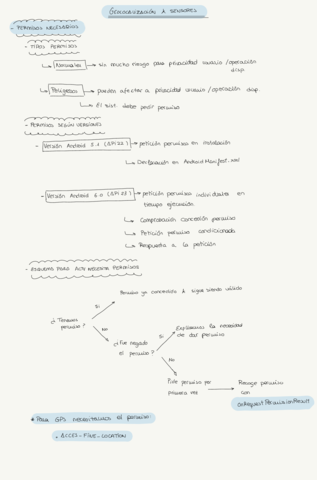 GEOLOCALIZACIÓN Y SENSORES
- PERMISOS NECESARIOS
- TIPOS PERMISOS
Normales → no mucho riesgo para privacidad usuario/operación
disp
Peligrosos → pueden afectar a privacidad usuario/operación disp.
El sist. debe pedir permiso
- PERMISOS SEGÚN VERSIONES
Versión Android 5.1 (API 22) → petición permisos en instalación
Declaración en AndroidManifest.xml
Versión Android 6.0 (API 23) → petición permisos individuales en
tiempo ejecución.
Comprobación concesión permiso
Petición permiso condicionada
Respuesta a la petición
- ESQUEMA PARA ACTS NECESITA PERMISOS
Permiso ya concedido & sigue siendo válido
Si
¿Tenemos
permiso?
No
¿Fue negado
el permiso?
Si
Explicamos la necesidad
de dar permiso
No
Pide permiso por
primera vez
Recoge permiso
con
onRequestPermissionResult
* Para GPS necesitamos el permiso:
. ACCES_FINE_LOCATION